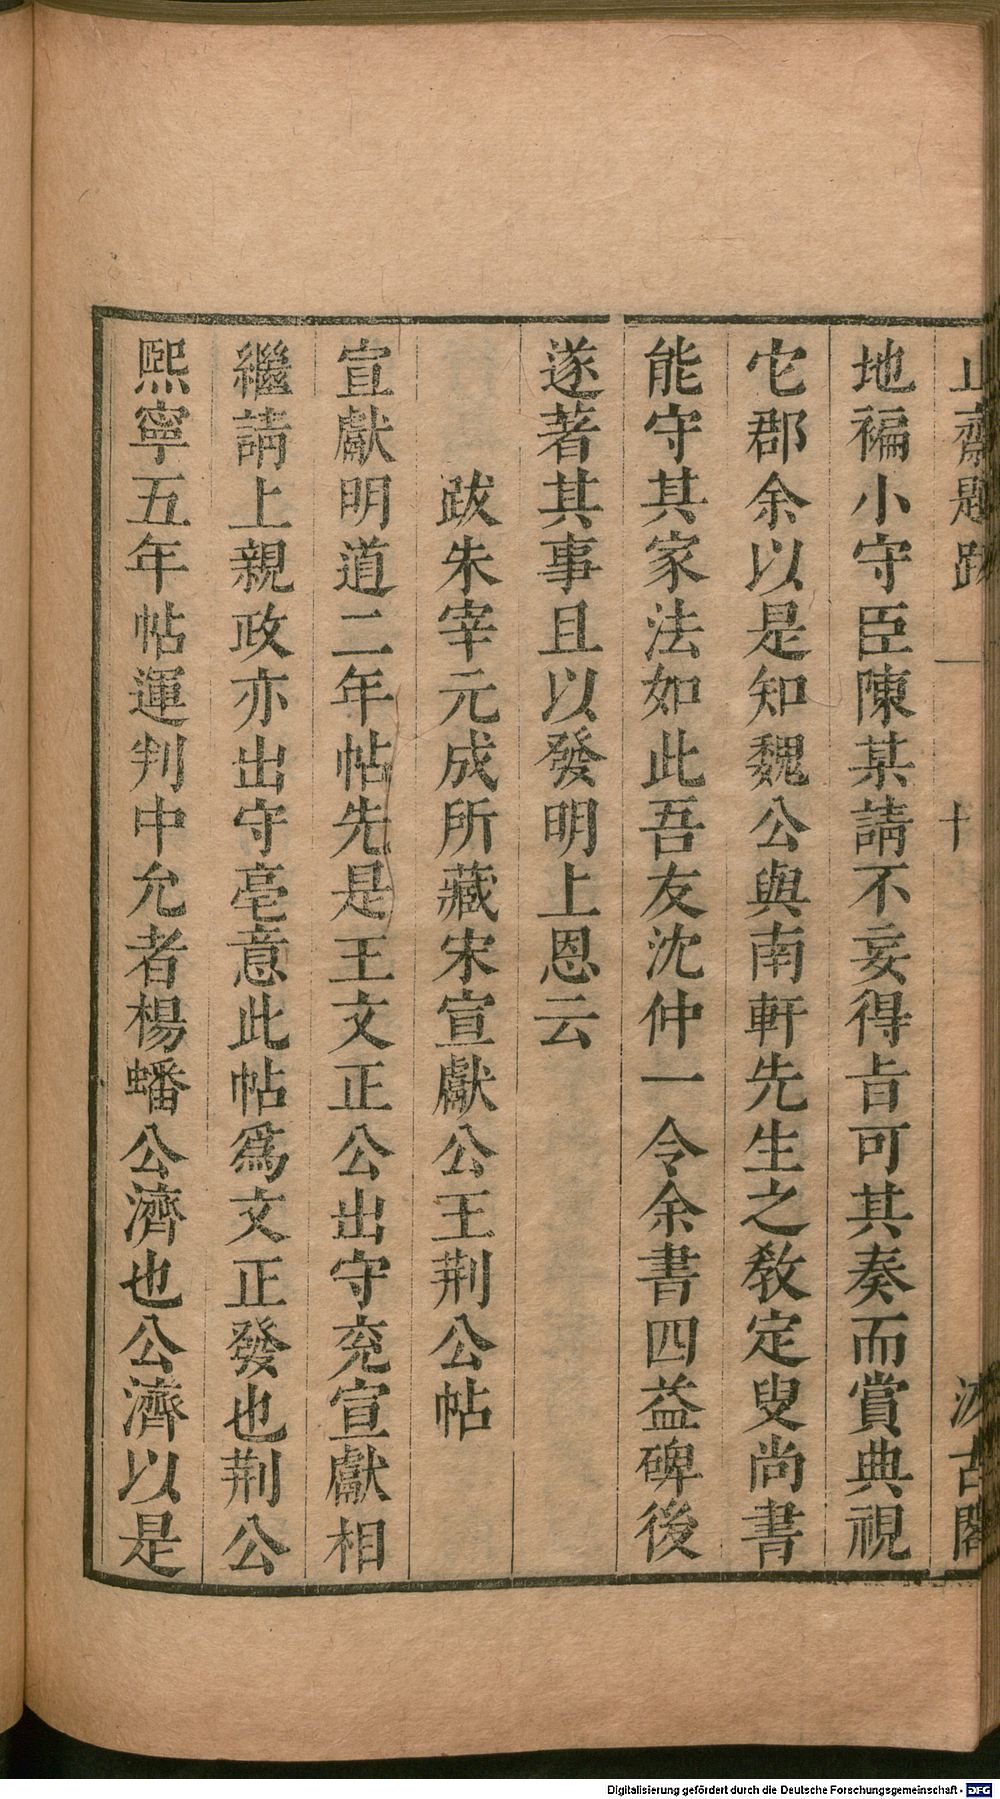 止齋題跋 一 十 汲古閣
地褊小守臣陳某請不妄得旨可其奏而賞典視
它郡余以是知魏公與南軒先生之敎定叟尚書
能守其家法如此吾友沈仲一令余書四益碑後
遂著其事且以發明上恩云
跋朱宰元成所藏宋宣獻公王荆公帖
宣獻明道二年帖先是王文正公出守兖宣獻相
繼請上親政亦出守亳意此帖爲文正發也荆公
熙寧五年帖運判中允者楊蟠公濟也公濟以是
Digitalisierung gefördert durch die Deutsche Forschungsgemeinschaft - DFG